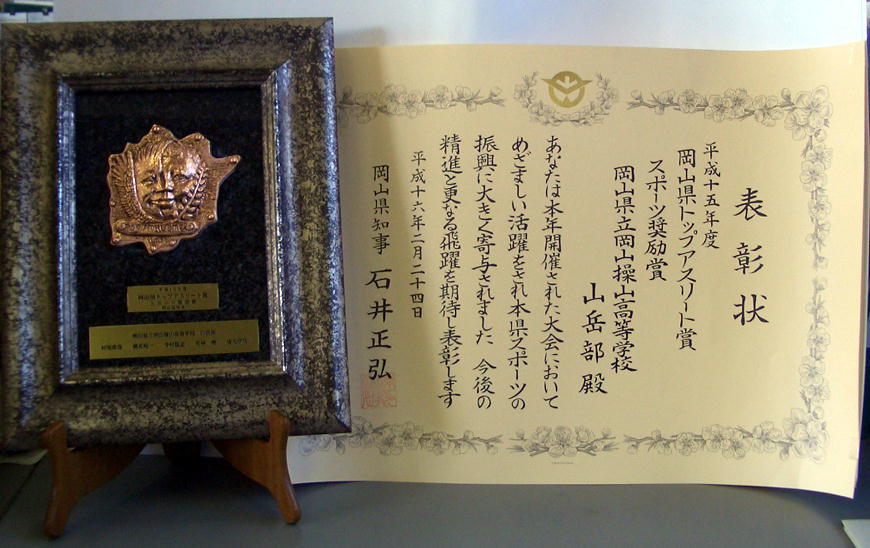 表彰状
平成十五年度
岡山県トップアスリート賞
スポーツ奨励賞
岡山県立岡山操山高等学校
山岳部殿
あなたは本年開催された大会において
めざましい活躍をされ本県スポーツの
振興に大きく寄与されました 今後の
精進と更なる飛躍を期待し表彰します
平成十六年二月二十四日
岡山県知事 石井正弘
岡山県トップアスリート賞